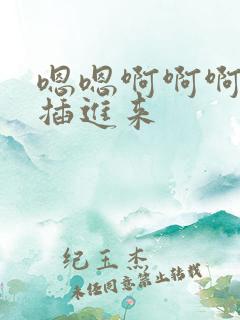 嗯嗯啊啊啊
插进来
纪玉杰
未经同意禁止转载